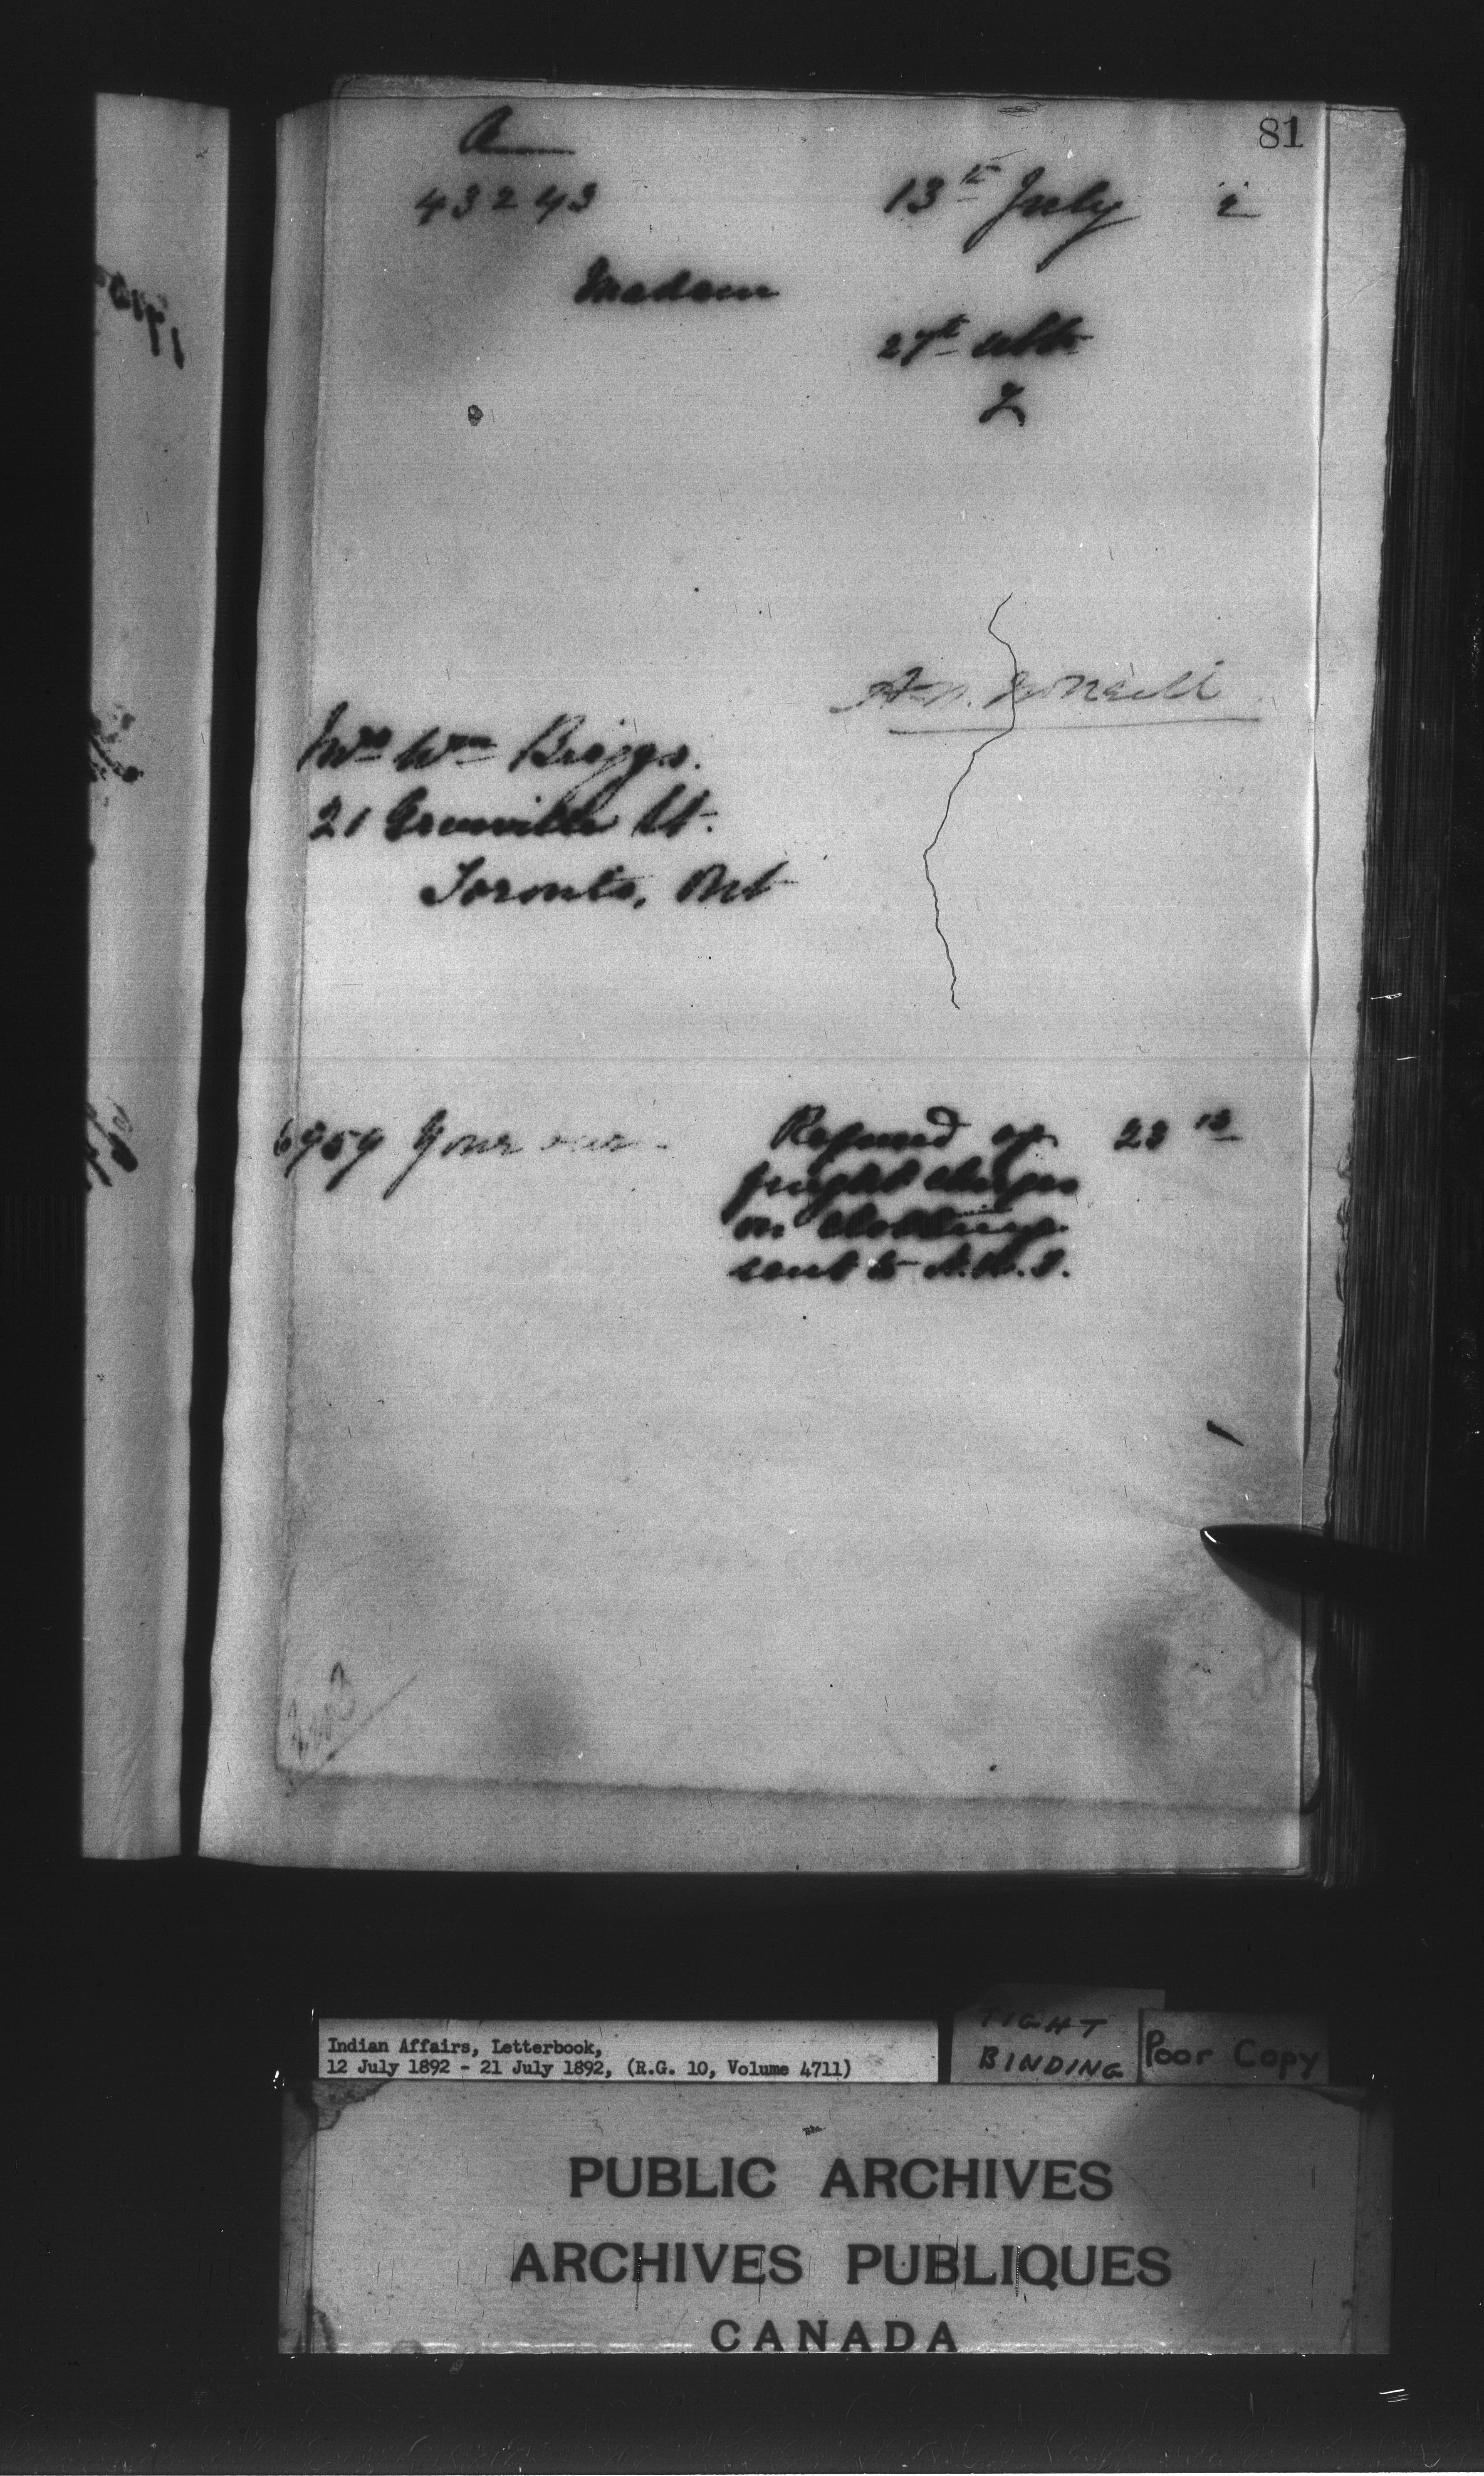 81
A
43243 13th July 2
Madam
27th ulto
Mrs Wm Briggs.
21 Grenville St.
Toronto, Ont
6959 Your own Refund of 23 12
freight charges
on clothing
sent to N.W.T.
Indian Affairs, Letterbook,
12 July 1892 - 21 July 1892, (R.G. 10, Volume 4711)
TIGHT
BINDING
Poor Copy
PUBLIC ARCHIVES
ARCHIVES PUBLIQUES
CANADA